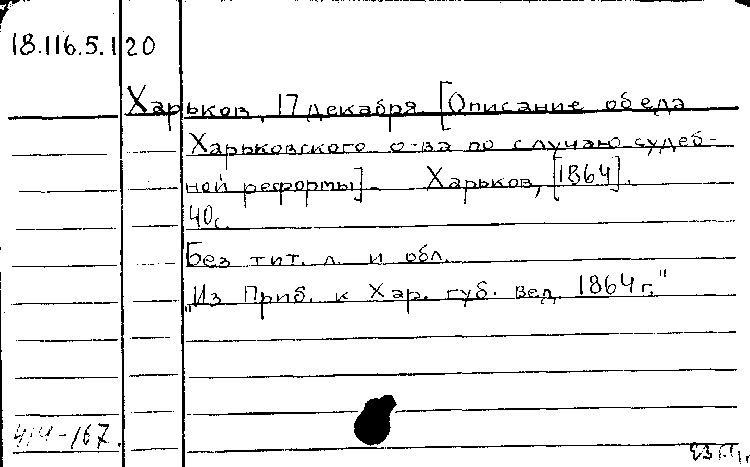 18.116.5.120
Харьков, 17 декабря [Описание обеда
Харьковского о-ва по случаю судеб-
ной реформы]. Харьков, [1864].
40с.
Без тит. л. и обл.
"Из Приб. к Хар. губ. вед. 1864 г."
414-167.